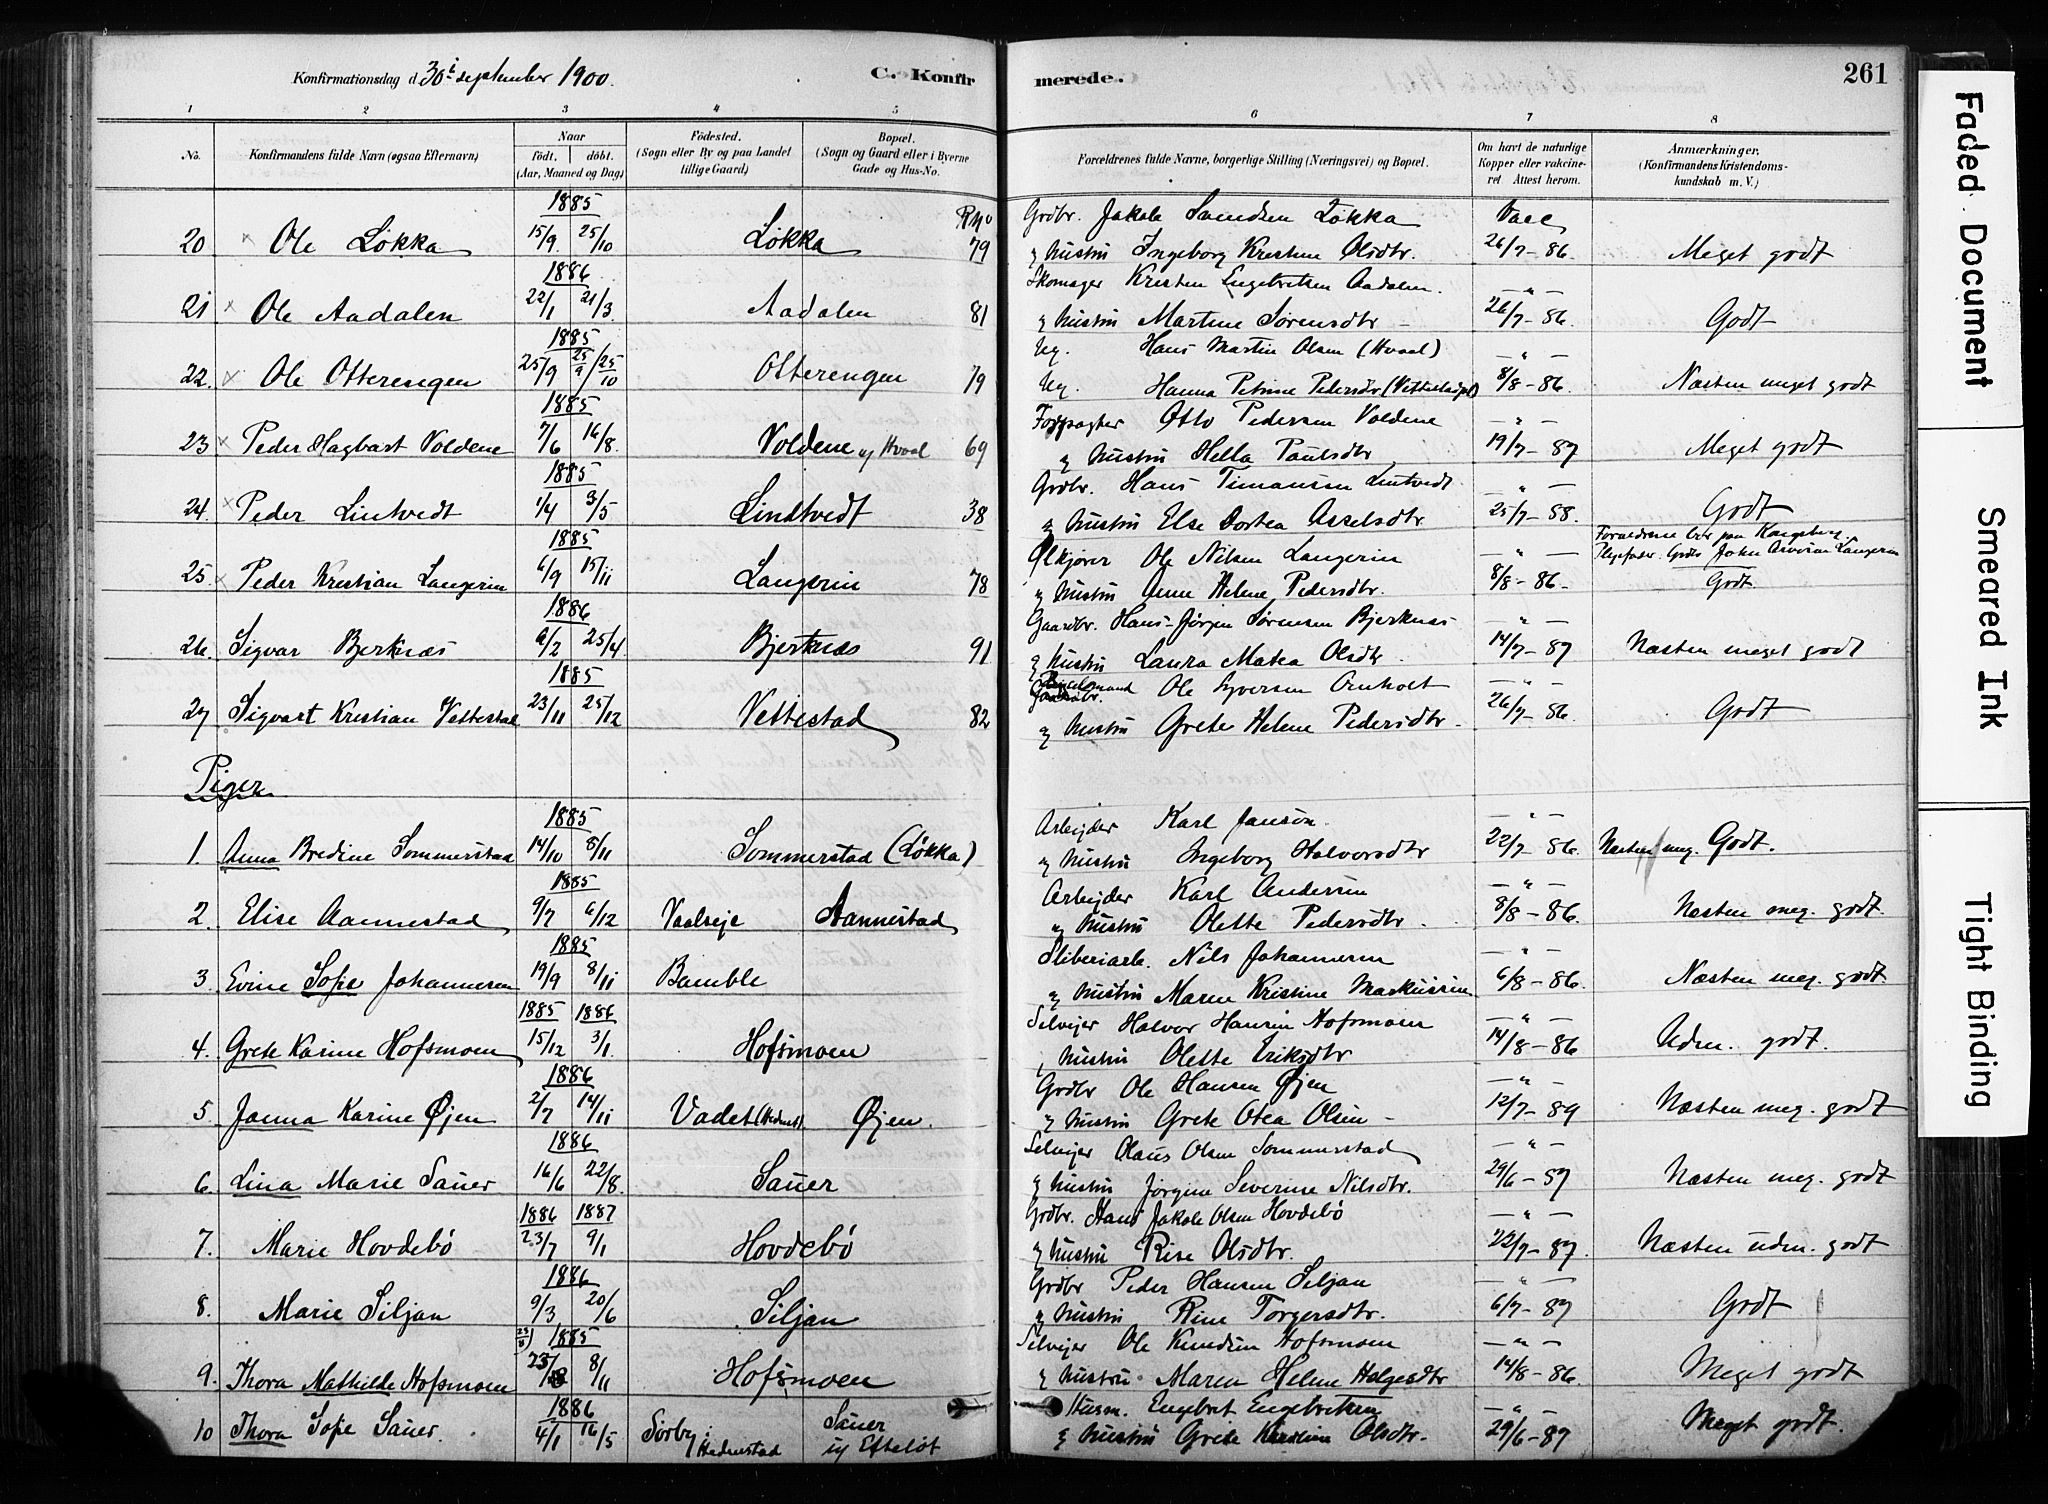 Konfirmationsdag d 30te september 1900. C. Konfirmerede. 261
1 2 3 4 5 6 7 8
No. Konfirmandens fulde Navn (ogsaa Efternavn) Naar født. døbt. (Aar, Maaned og Dag) Fødested. (Sogn eller By og paa Landet tillige Gaard) Bopæl. (Sogn og Gaard eller i Byerne Gade og Hus-No. Forældrenes fulde Navne, borgerlige Stilling (Næringsvei) og Bopæl. Om havt de naturlige Kopper eller vakcineret Attest herom. Anmærkninger, (Konfirmandens Kristendomskundskab m. V.)
1885 Grdbr. Jakob Løkka Vacc
20 × Ole Løkka 15/9 25/10 Løkka 79 og hustru Ingeborg Kristine Olsdtr. 26/7-86. Meget godt
1886 Skomager Kristen Engebretsen Aadalen. — " —
21 × Ole Aadalen 22/1 21/3. Aadalen 81 og hustru Martine Sørensdtr 26/7-86. Godt
1885 Ug. Hans Martin Olsen (Hvaal) — " —
22. × Ole Otterengen 25/9 25/9 / 25/10 Otterengen 79 Ug. Hanna Petrine Pedersdtr 8/8-86. Næsten meget godt
1885 Forpagter Otto Pedersen Voldene — " —
23 × Peder Hagbart Voldene 7/6 16/8. Voldene u/ Hvaal 69 og hustru Hella Paulsdtr 19/7-87 Meget godt
1885 Grdbr. Hans Timansen Lintvedt — " —
24. × Peder Lintvedt 1/4 3/5 Lindtvedt 38 og hustru Else Dortea Axelsdtr. 25/7-88. Godt
Forældrene bor paa Kongsberg
1885 Ølkjører Ole Nilsen Langerin — " — Plejefader. Grdbr John Langerin
25. × Peder Kristian Langerin 6/9 15/11 Langerin 78 og hustru Anne Helene Pedersdtr. 8/8-86. Godt.
1886 Gaardbr. Hans Jørgen Sørensen Bjerknæs — " —
26. Sigvar Bjerknæs 6/2 25/4 Bjerknæs 91 og hustru Laura Matea Olsdtr. 14/7-87 Næsten meget godt
1885 Ole Syversen — " —
27 Sigvart Kristian Vettestad 23/11 25/12 Vettestad 82 og hustru Grete Helene Pedersdtr. 26/7-86. Godt
Piger
1885 Arbejder Karl Janson. — " —
1. Anna Bredine Sommerstad 14/10 8/11 Sommerstad (Løkka) og hustru Ingeborg Halvorsdtr 22/7-86. Næsten meg. Godt.
1885 Arbejder Karl Andersen — " —
2. Elise Aannestad 9/7 6/12 Vaalseje Aannestad og hustru Olette Pedersdtr. 8/8-86. Næsten meg. godt.
1885 Sliberiarb. Nils Johannesen — " —
3. Evine Sofie Johannesen 19/9 8/11 Bamble og hustru Maren Kristine Markussen 6/8-86. Næsten meg. godt.
1885 1886 Selvejer Halvor Hansen Hofsmoen — " —
4. Grete Karine Hofsmoen 15/12 3/1. Hofsmoen og hustru Olette Eriksdtr 14/8-86 Udm. godt.
1886 Grdbr Ole Hansen Øjen — " —
5. Janna Karine Øjen 2/7 14/11 Vadet (Hedenst). Øjen. og hustru Grete Otea Olsen 12/7-89 Næsten meg. godt
1886 Selvejer Olaus Olsen Sommerstad — " —
6. Lina Marie Sauer 16/6 22/8. Sauer og hustru Jørgine Severine Nilsdtr. 29/6-87 Næsten meg. godt
1886 1887 Grdbr. Hans Jakob Olsen Hovdebø — " —
7. Marie Hovdebø 23/7 9/1 Hovdebø og hustru Rise Olsdtr. 22/7-87. Næsten udm. godt
1886 Grdbr Peder Hansen Siljan — " —
8. Marie Siljan 9/3 20/6 Siljan og hustru Rine Torgersdtr. 6/7-87 Godt
1885 Selvejer Ole Knudsen Hofsmoen — " —
9. Thora Mathilde Hofsmoen 8/11 Hofsmoen og hustru Maren Helene Helgesdtr 14/8-86. Meget godt
1886 Husm. Engebret Engebretsen — " —
10 Thora Sofie Sauer. 4/1 16/5 Sørby i Hedenstad Sauer u/ Efteløt og hustru Grete Karoline Olsdtr. 29/6-87 Meget godt.
Faded Document
Smeared Ink
Tight Binding